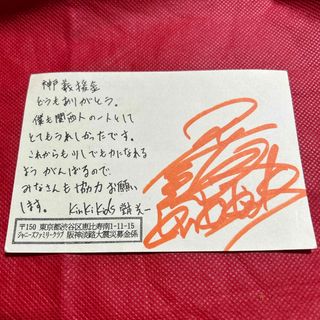 神戸義援金
どうもありがとう。
僕も関西人の一人として
とてもうれしかったです。
これからも少しでも力になれる
ようがんばるので
みなさんも協力お願い
します。 KinKi Kids 堂本光一
〒150 東京都渋谷区恵比寿南1-11-15
ジャニーズファミリークラブ 阪神淡路大震災募金係